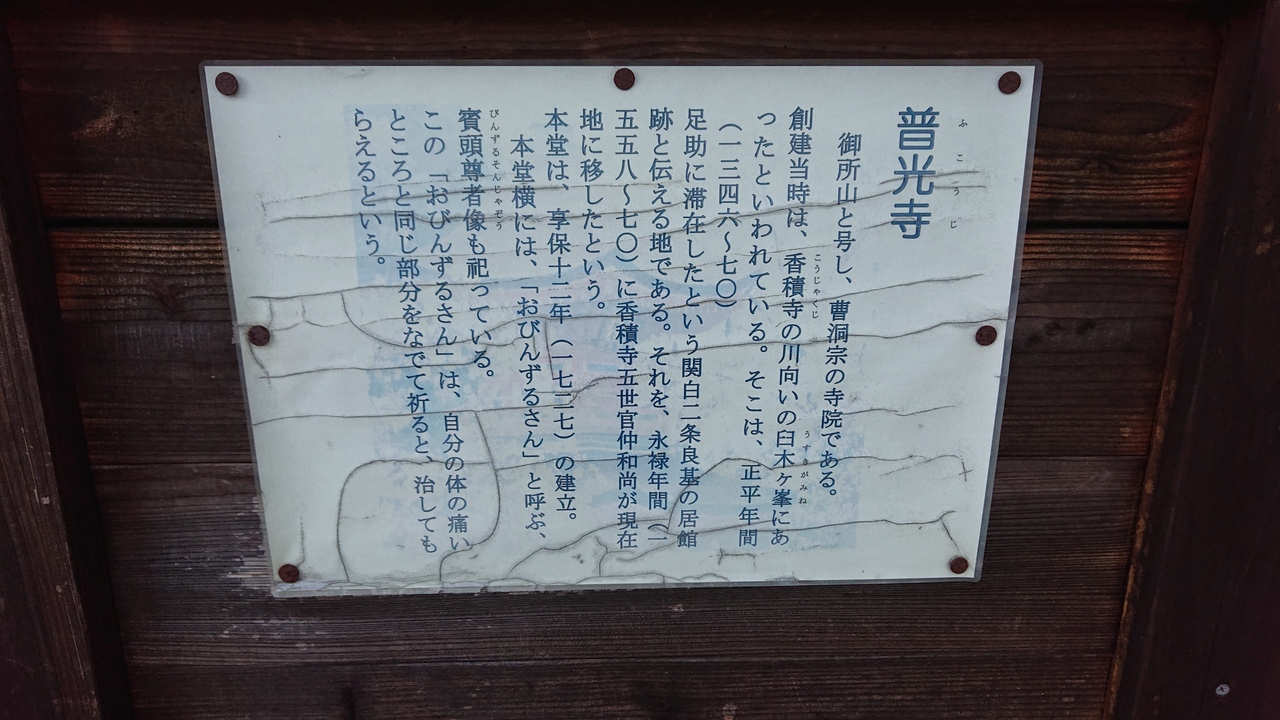 普光寺
ふこうじ
御所山と号し、曹洞宗の寺院である。
創建当時は、香積寺の川向いの臼木ヶ峯にあ
こうじゃくじ
うすきがみね
ったといわれている。そこは、正平年間
(一三四六〜七〇)
足助に滞在したという関白二条良基の居館
跡と伝える地である。それを、永禄年間(一
五五八〜七〇)に香積寺五世官仲和尚が現在
地に移したという。
本堂は、享保十二年(一七二七)の建立。
本堂横には、「おびんずるさん」と呼ぶ、
賓頭尊者像も祀っている。
びんずるそんじゃぞう
この「おびんずるさん」は、自分の体の痛い
ところと同じ部分をなでて祈ると、治しても
らえるという。